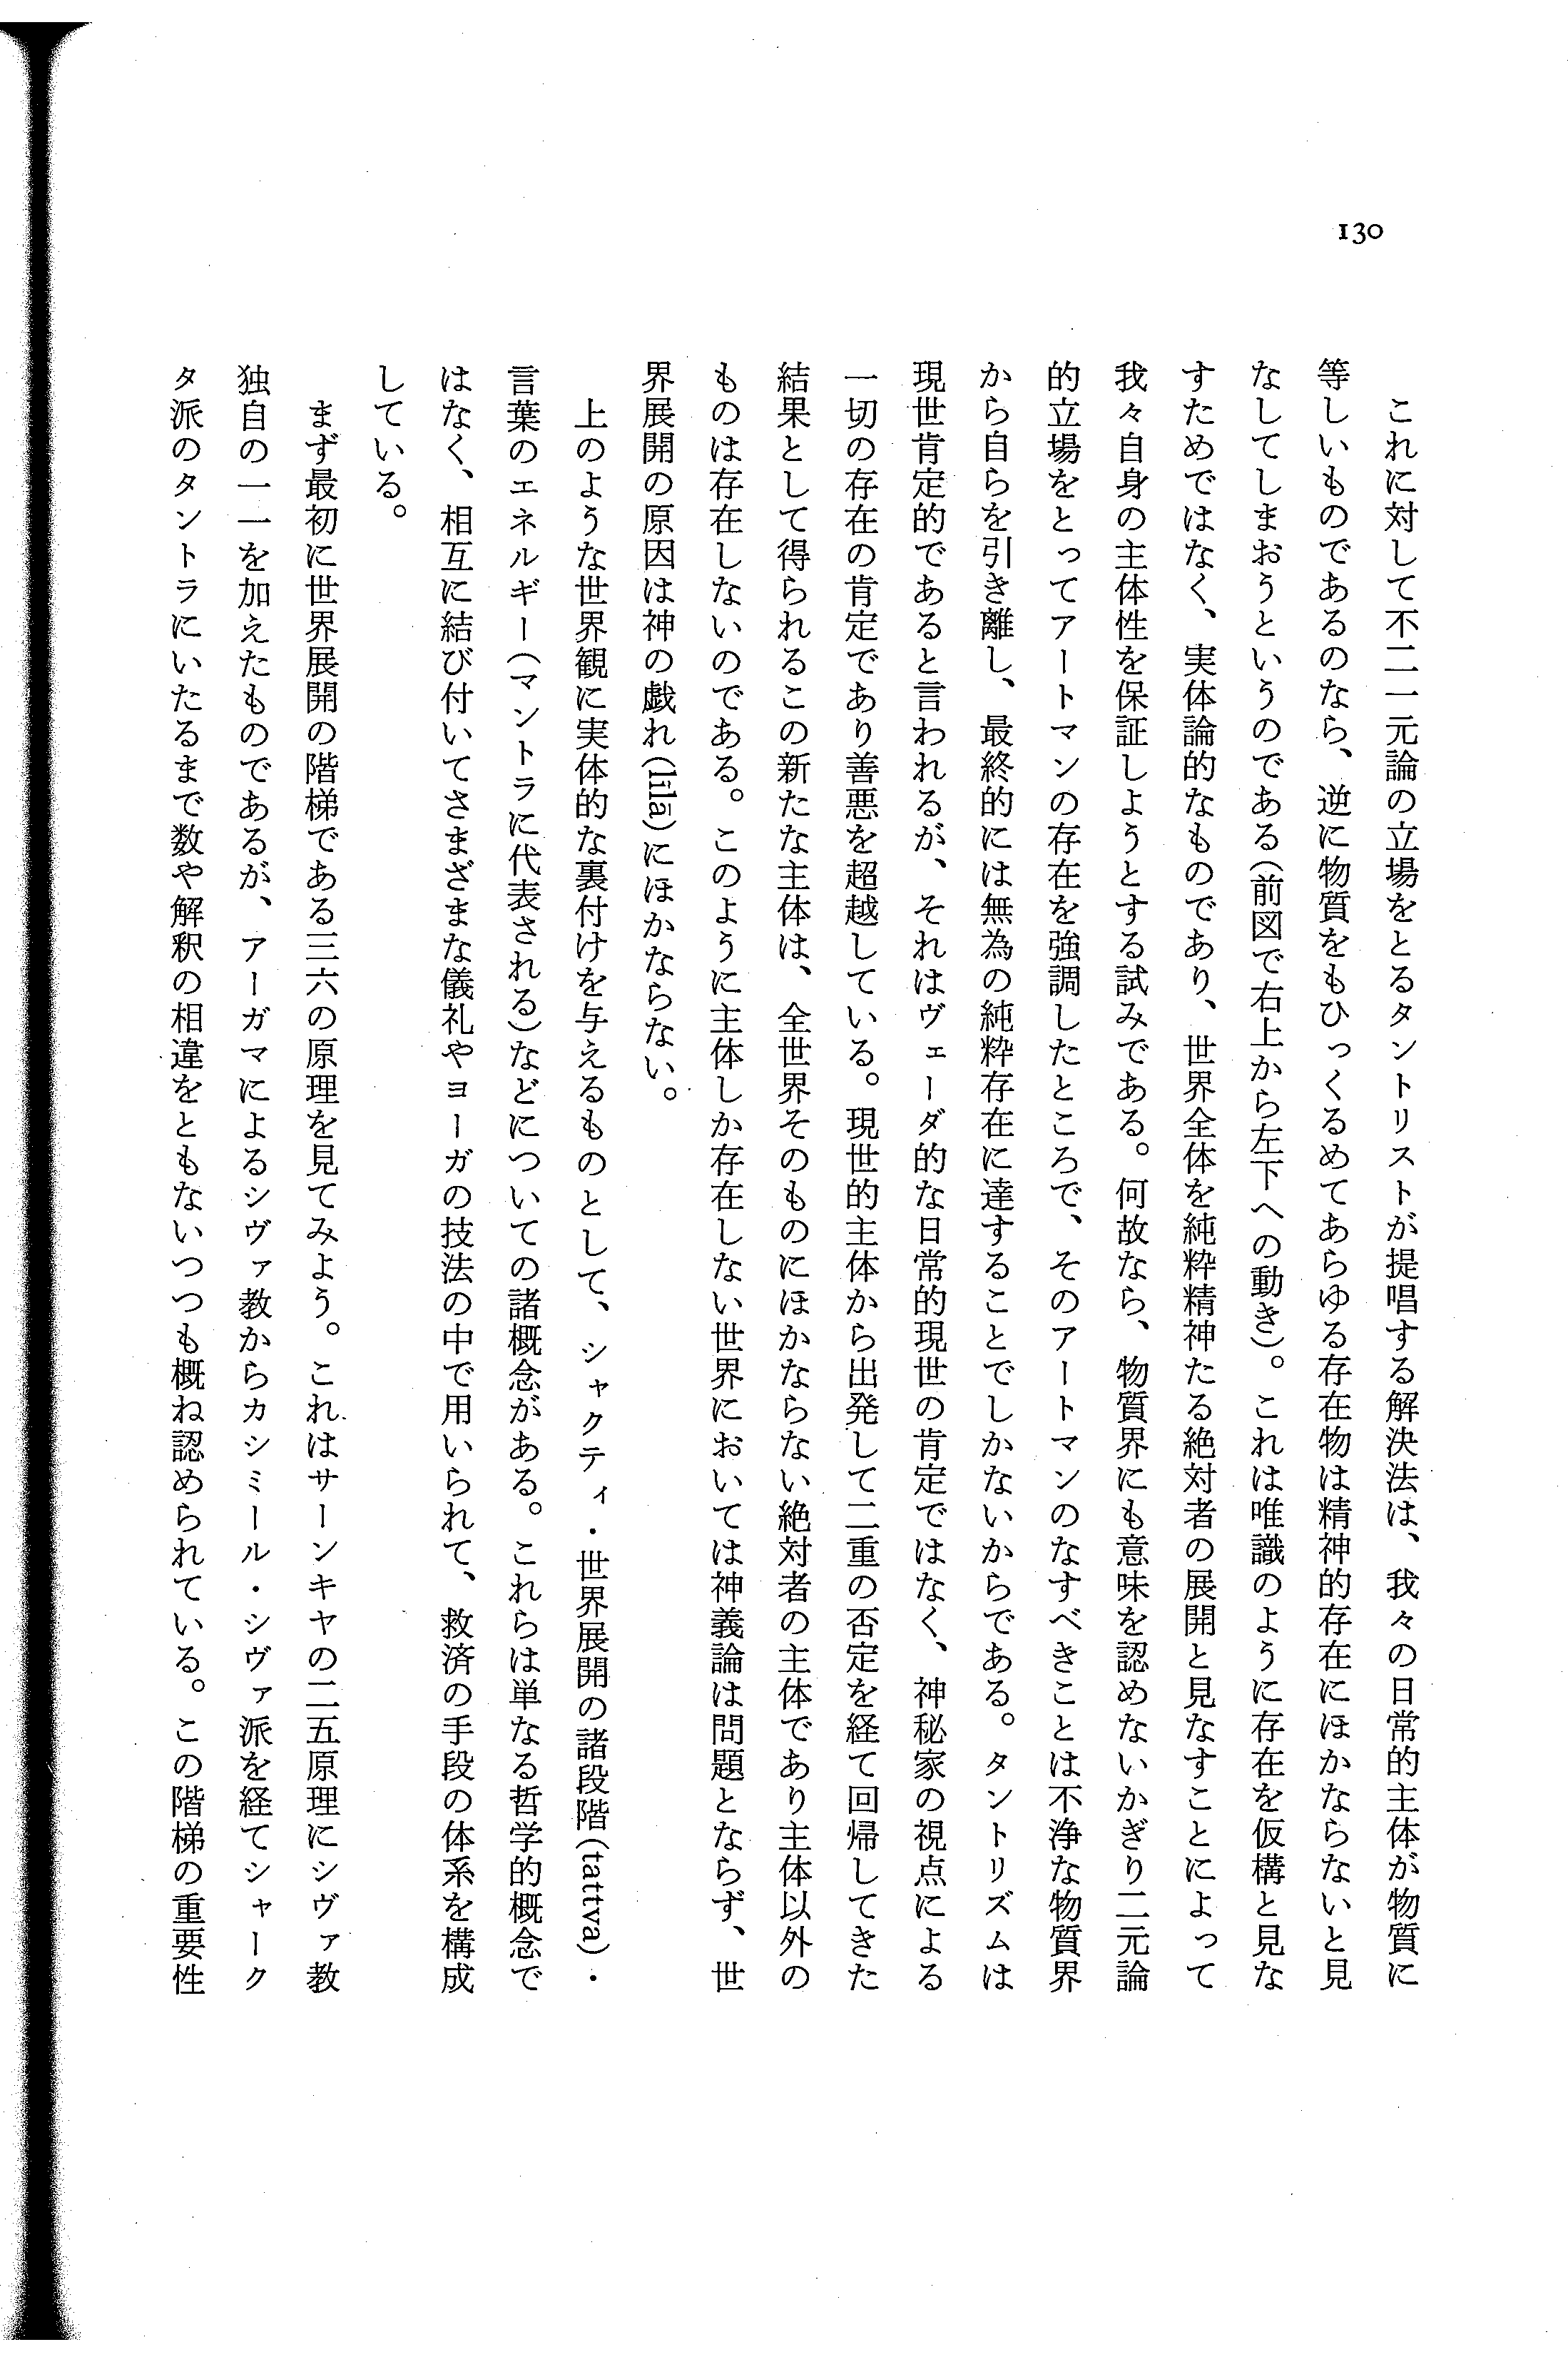 130
これに対して不二一元論の立場をとるタントリストが提唱する解決法は、我々の日常的主体が物質に
等しいものであるのなら、逆に物質をもひっくるめてあらゆる存在物は精神的存在にほかならないと見
なしてしまおうというのである(前図で右上から左下への動き)。これは唯識のように存在を仮構と見な
すためではなく、実体論的なものであり、世界全体を純粋精神たる絶対者の展開と見なすことによって
我々自身の主体性を保証しようとする試みである。何故なら、物質界にも意味を認めないかぎり二元論
的立場をとってアートマンの存在を強調したところで、そのアートマンのなすべきことは不浄な物質界
から自らを引き離し、最終的には無為の純粋存在に達することでしかないからである。タントリズムは
現世肯定的であると言われるが、それはヴェーダ的な日常的現世の肯定ではなく、神秘家の視点による
一切の存在の肯定であり善悪を超越している。現世的主体から出発して二重の否定を経て回帰してきた
結果として得られるこの新たな主体は、全世界そのものにほかならない絶対者の主体であり主体以外の
ものは存在しないのである。このように主体しか存在しない世界においては神義論は問題とならず、世
界展開の原因は神の戯れ(līlā)にほかならない。
上のような世界観に実体的な裏付けを与えるものとして、シャクティ・世界展開の諸段階(tattva)・
言葉のエネルギー(マントラに代表される)などについての諸概念がある。これらは単なる哲学的概念で
はなく、相互に結び付いてさまざまな儀礼やヨーガの技法の中で用いられて、救済の手段の体系を構成
している。
まず最初に世界展開の階梯である三六の原理を見てみよう。これはサーンキヤの二五原理にシヴァ教
独自の一一を加えたものであるが、アーガマによるシヴァ教からカシミール・シヴァ派を経てシャーク
タ派のタントラにいたるまで数や解釈の相違をともないつつも概ね認められている。この階梯の重要性